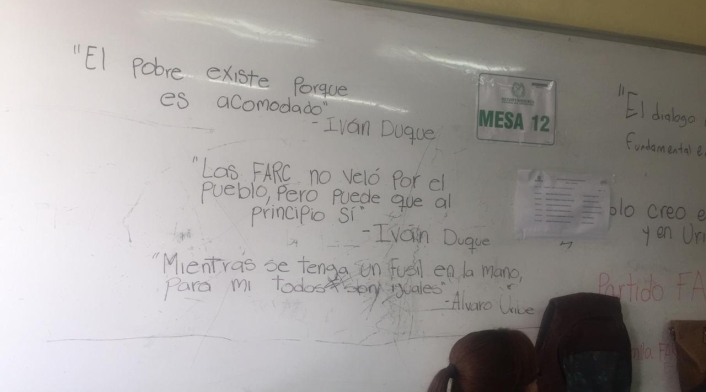 "El pobre existe porque
es acomodado"
- Iván Duque
MESA 12
"El dialogo
Fundamental
"Las FARC no veló por el
pueblo, pero puede que al
principio sí"
- Iván Duque
creo
y en
"Mientras se tenga un fusil en la mano,
para mi todos son iguales"
- Alvaro Uribe
Partido FA